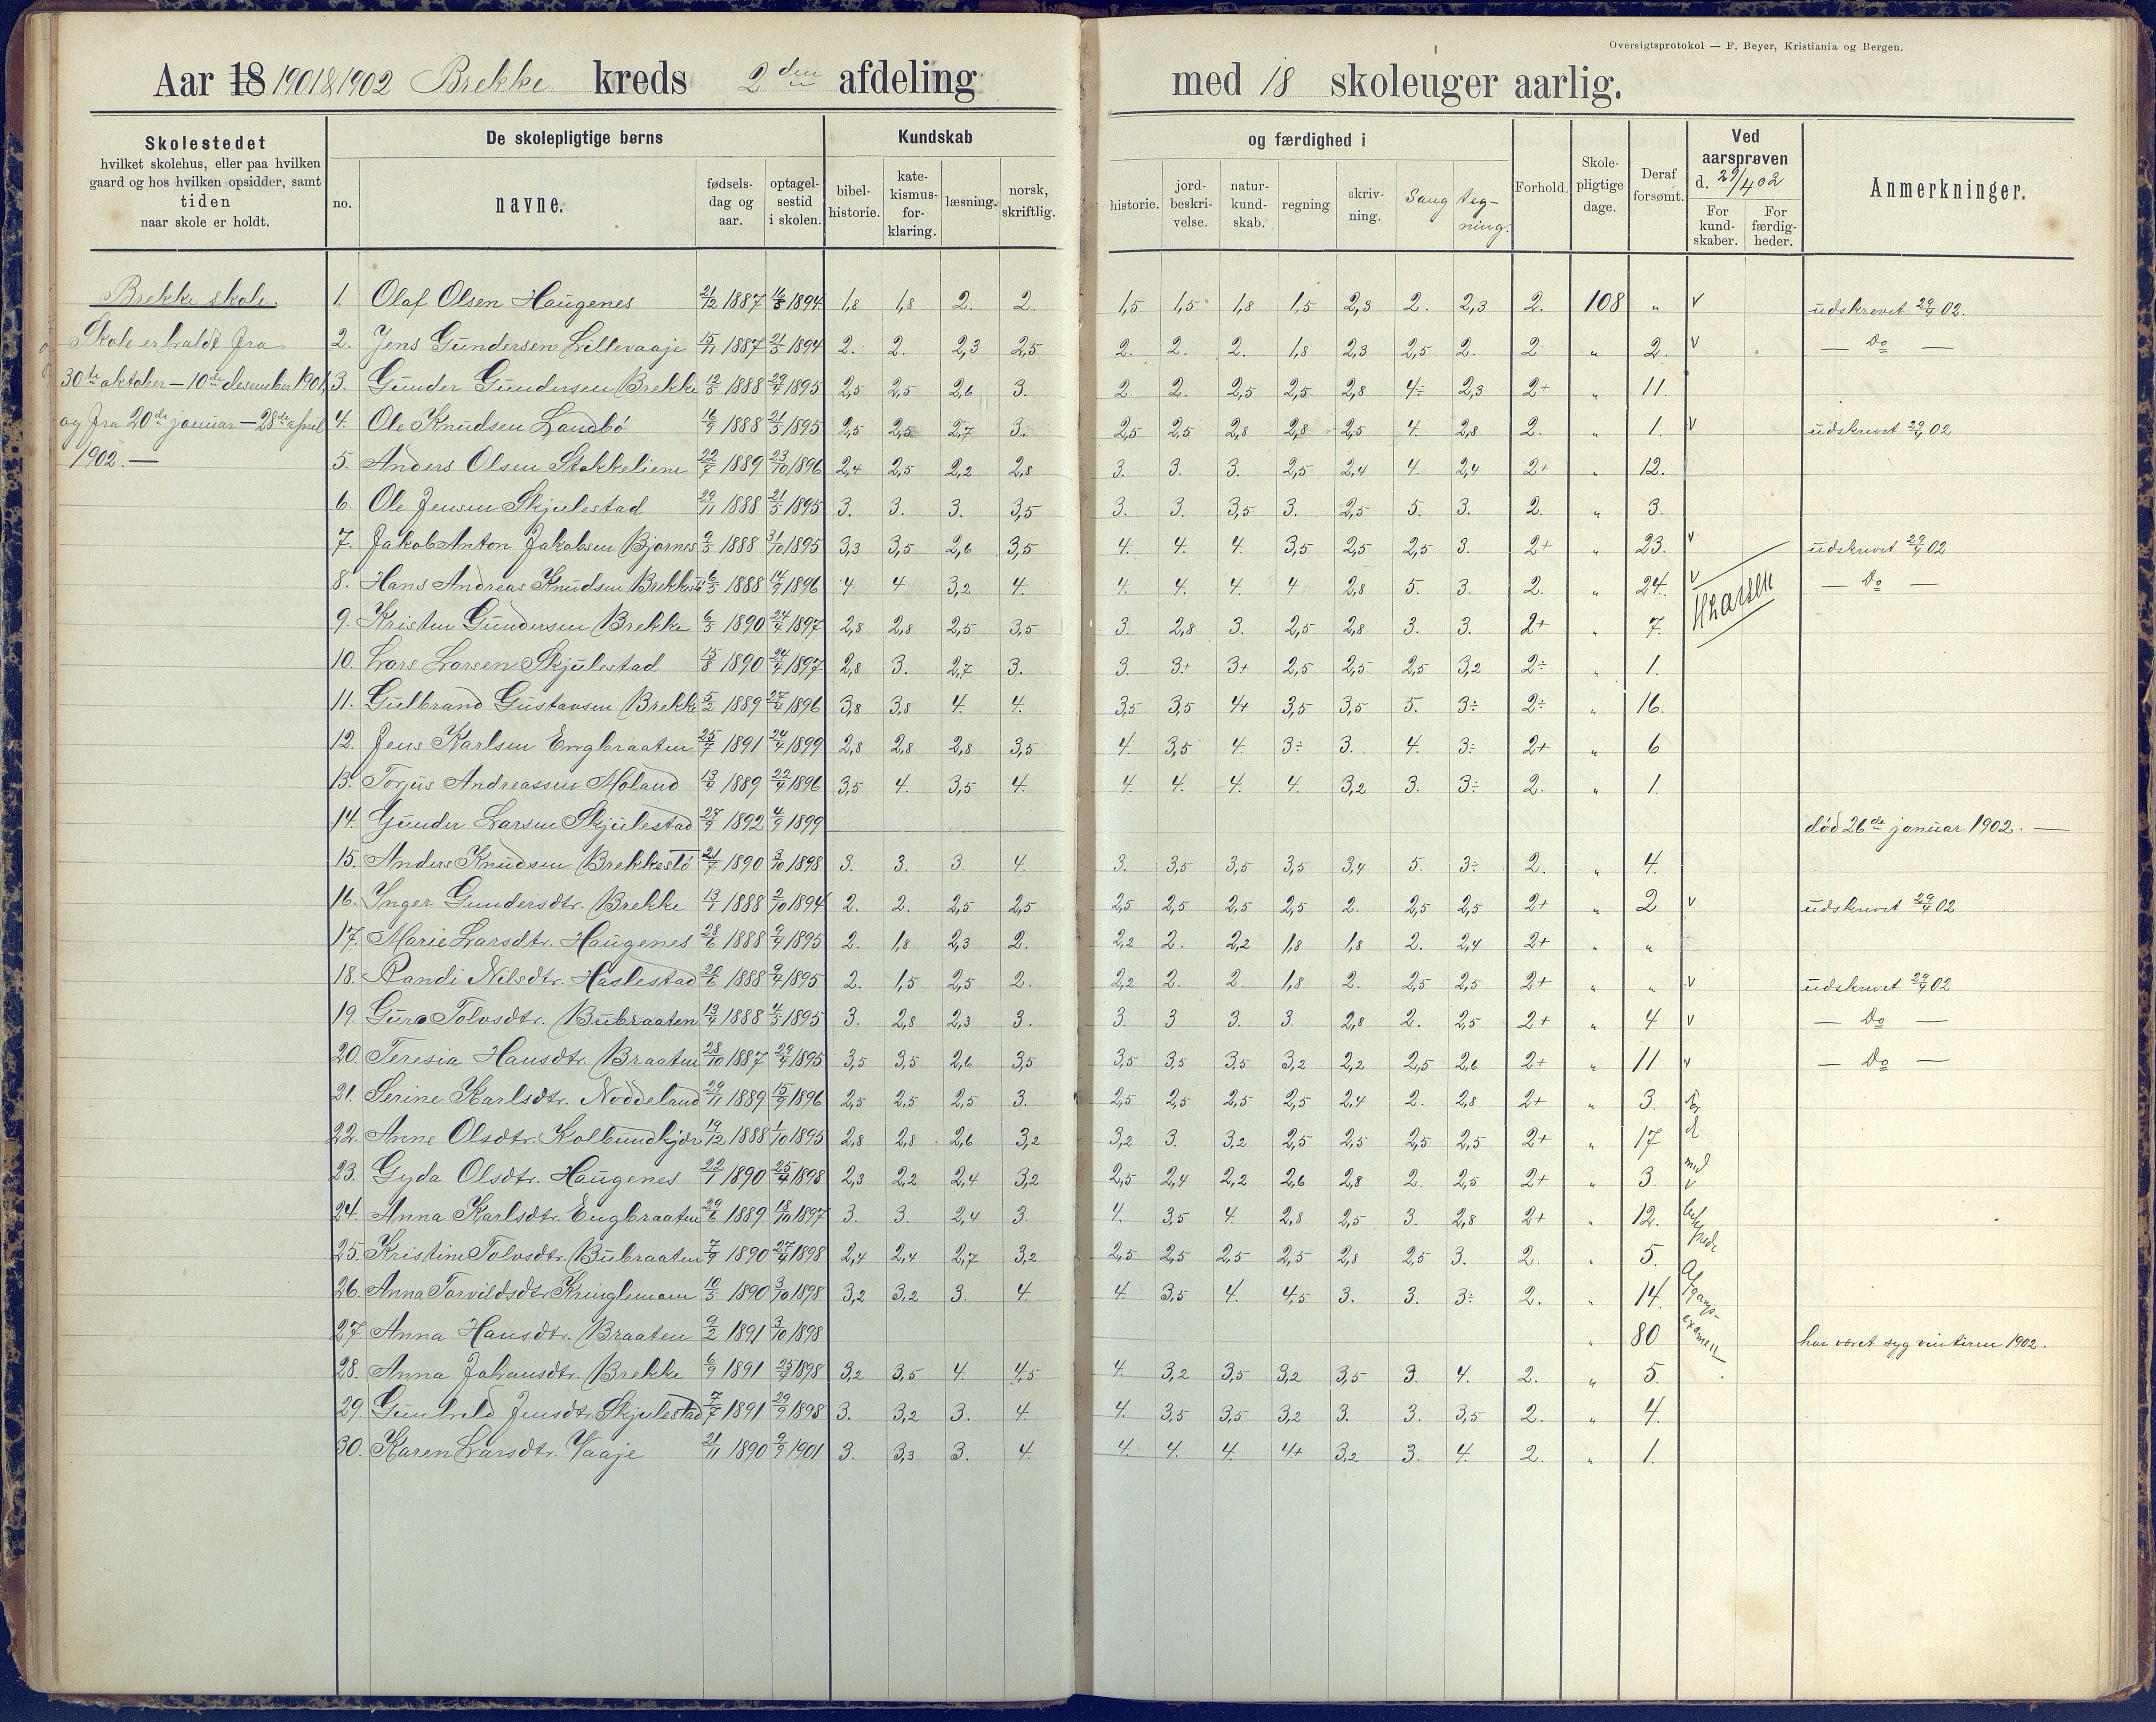 Oversigtsprotokol — F. Beyer, Kristiania og Bergen.
Aar 18 1901&1902 Brekke kreds 2den afdeling med 18 skoleuger aarlig.
Skolestedet
hvilket skolehus, eller paa hvilken
gaard og hos hvilken opsidder, samt
tiden
naar skole er holdt.
De skolepligtige børns
no. navne. fødsels-dag og aar. optagel-sestid i skolen.
Kundskab og færdighed i
bibel-historie. kate-kismus-for-klaring. læsning. norsk, skriftlig. historie. jord-beskri-velse. natur-kund-skab. regning skriv-ning. Sang teg-ning.
Forhold. Skole-pligtige dage. Deraf forsømt.
Ved aarsprøven d. 29/4 02
For kund-skaber. For færdig-heder.
Anmerkninger.
Brekke skole.
Skole er holdt fra
30te oktober — 10de desember 1901,
og fra 20de januar — 28de april
1902. —
1. Olaf Olsen Haugenes 21/12 1887 16/5 1894 1,8 1,8 2. 2. 1,5 1,5 1,8 1,5 2,3 2. 2,3 2. 108 " v udskrevet 29/4 02.
2. Jens Gundersen Lillevaaje 15/11 1887 21/5 1894 2. 2. 2,3 2,5 2. 2. 2. 1,8 2,3 2,5 2. 2 " 2. v — Do —
3. Gunder Gundersen Brekke 12/5 1888 29/4 1895 2,5 2,5 2,6 3. 2. 2. 2,5 2,5 2,8 4÷ 2,3 2+ " 11.
4. Ole Knudsen Landbö 16/9 1888 21/5 1895 2,5 2,5 2,7 3. 2,5 2,5 2,8 2,8 2,5 4. 2,8 2. " 1. v udskrevet 29/4 02
5. Anders Olsen Stokkeliene 22/7 1889 23/10 1896 2,4 2,5 2,2 2,8 3. 3. 3. 2,5 2,4 4. 2,4 2+ " 12.
6. Ole Jensen Skjulestad 29/11 1888 21/5 1895 3. 3. 3. 3,5 3. 3. 3,5 3. 2,5 5. 3. 2. " 3.
7. Jakob Anton Jakobsen Bjornes 9/5 1888 31/10 1895 3,3 3,5 2,6 3,5 4. 4. 4. 3,5 2,5 2,5 3. 2+ " 23. v udskrevet 29/4 02
8. Hans Andreas Knudsen Brekkestö 6/5 1888 14/9 1896 4 4 3,2 4. 4. 4. 4. 4 2,8 5. 3. 2. " 24. v — Do —
H Larsen
9. Kristen Gundersen Brekke 6/5 1890 24/4 1897 2,8 2,8 2,5 3,5 3. 2,8 3. 2,5 2,8 3. 3. 2+ " 7.
10. Lars Larsen Skjulestad 15/8 1890 24/4 1897 2,8 3. 2,7 3. 3. 3+ 3+ 2,5 2,5 2,5 3,2 2÷ " 1.
11. Gulbrand Gustavsen Brekke 5/2 1889 27/4 1896 3,8 3,8 4. 4. 3,5 3,5 4+ 3,5 3,5 5. 3÷ 2÷ " 16.
12. Jens Karlsen Engbraaten 25/7 1891 24/4 1899 2,8 2,8 2,8 3,5 4. 3,5 4. 3÷ 3. 4. 3÷ 2+ " 6
13. Torjus Andreassen Moland 13/4 1889 22/4 1896 3,5 4. 3,5 4. 4. 4. 4. 4. 3,2 3. 3÷ 2. " 1.
14. Gunder Larsen Skjulestad 27/9 1892 4/9 1899 død 26de januar 1902. —
15. Anders Knudsen Brekkestö 21/7 1890 3/10 1898 3. 3. 3. 4. 3. 3,5 3,5 3,5 3,4 5. 3÷ 2. " 4.
16. Inger Gundersdtr. Brekke 13/1 1888 2/10 1894 2. 2. 2,5 2,5 2,5 2,5 2,5 2,5 2. 2,5 2,5 2+ " 2 v udskrevet 29/4 02
17. Marie Larsdtr. Haugenes 28/6 1888 9/4 1895 2. 1,8 2,3 2. 2,2 2. 2,2 1,8 1,8 2. 2,4 2+ " "
18. Randi Nilsdtr. Haslestad 20/6 1888 9/4 1895 2. 1,5 2,5 2. 2,2 2. 2. 1,8 2. 2,5 2,5 2+ " " v udskrevet 29/4 02
19. Guro Tolvsdtr. Bubraaten 13/4 1888 4/5 1895 3. 2,8 2,3 3. 3. 3 3. 3. 2,8 2. 2,5 2+ " 4 v — Do —
20. Teresia Hansdtr. Braaten 28/10 1887 29/4 1895 3,5 3,5 2,6 3,5 3,5 3,5 3,5 3,2 2,2 2,5 2,6 2+ " 11 v — Do —
21. Serine Karlsdtr. Noddeland 29/11 1889 15/9 1896 2,5 2,5 2,5 3. 2,5 2,5 2,5 2,5 2,4 2. 2,8 2+ " 3.
22. Anne Olsdtr. Kolbundkjær 19/12 1888 1/10 1895 2,8 2,8 2,6 3,2 3,2 3. 3,2 2,5 2,5 2,5 2,5 2+ " 17
23. Gyda Olsdtr. Haugenes 22/1 1890 25/4 1898 2,3 2,2 2,4 3,2 2,5 2,4 2,2 2,6 2,8 2. 2,5 2+ " 3. med v
24. Anna Karlsdtr. Engbraaten 29/6 1889 18/10 1897 3. 3. 2,4 3. 4. 3,5 4. 2,8 2,5 3. 2,8 2+ " 12.
25. Kristine Tolvsdtr. Bubraaten 7/9 1890 27/4 1898 2,4 2,4 2,7 3,2 2,5 2,5 2,5 2,5 2,8 2,5 3. 2. " 5.
26. Anna Torvildsdtr. Kringlemoen 10/5 1890 3/10 1898 3,2 3,2 3. 4. 4. 3,5 4. 4,5 3. 3. 3÷ 2. " 14. Afgangs-
27. Anna Hansdtr. Braaten 9/2 1891 3/10 1898 " 80 examen har været syg vinteren 1902.
28. Anna Johansdtr. Brekke 6/9 1891 25/4 1898 3,2 3,5 4. 4,5 4. 3,2 3,5 3,2 3,5 3. 4. 2. " 5.
29. Gunhild Jensdtr. Skjulestad 7/7 1891 29/9 1898 3. 3,2 3. 4. 4. 3,5 3,5 3,2 3. 3. 3,5 2. " 4.
30. Karen Larsdtr. Vaaje 21/11 1890 9/9 1901 3. 3,3 3. 4. 4. 4. 4. 4+ 3,2 3. 4. 2. " 1.